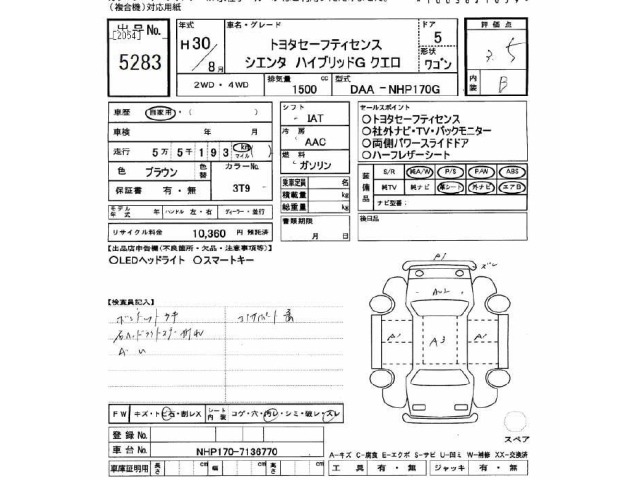 (複合機)対応用紙
出号No. 年式 車名・グレード ドア 評価点
[2054] H30 トヨタセーフティセンス 5
5283 8月 シエンタ ハイブリッドG クエロ 形状 ワゴン
2WD・4WD 排気量 1500 cc 型式 DAA-NHP170G 内装 B
車歴 自家用・( ) シフト IAT セールスポイント
車検 年 月 冷房 AAC ○トヨタセーフティセンス
○社外ナビ・TV・バックモニター
走行 5万5千193 km マイル ( ) 燃料 ガソリン ○両側パワースライドドア
○ハーフレザーシート
色 ブラウン 色替 カラーNo. 3T9 乗車定員 名
装備品 S/R 純A/W P/S P/W ABS
保証書 有・無 積載量 kg 純TV 純ナビ 革シート 外ナビ エアB
総重量 kg ナビ型番:
モデル年式 年 ハンドル 左・右 ディーラー・並行 書類期限 月 日 後日品
リサイクル料金 10,360 円 預託済
【出品店申告欄(不良箇所・欠品・注意事項等)】
○LEDヘッドライト ○スマートキー
【検査員記入】
A1
A2
A1 A3 A1
FW キズ・トビ石・割レX シート内装 コゲ・穴・汚レ・シミ・破レ・スレ
登録No.
スペア
車台No. NHP170-7136770
A-キズ C-腐食 E-エクボ S-サビ U-凹ミ W-補修 XX-交換済
車庫証明用 長さ cm 幅 cm 高さ cm 工具 有・無 ジャッキ 有・無